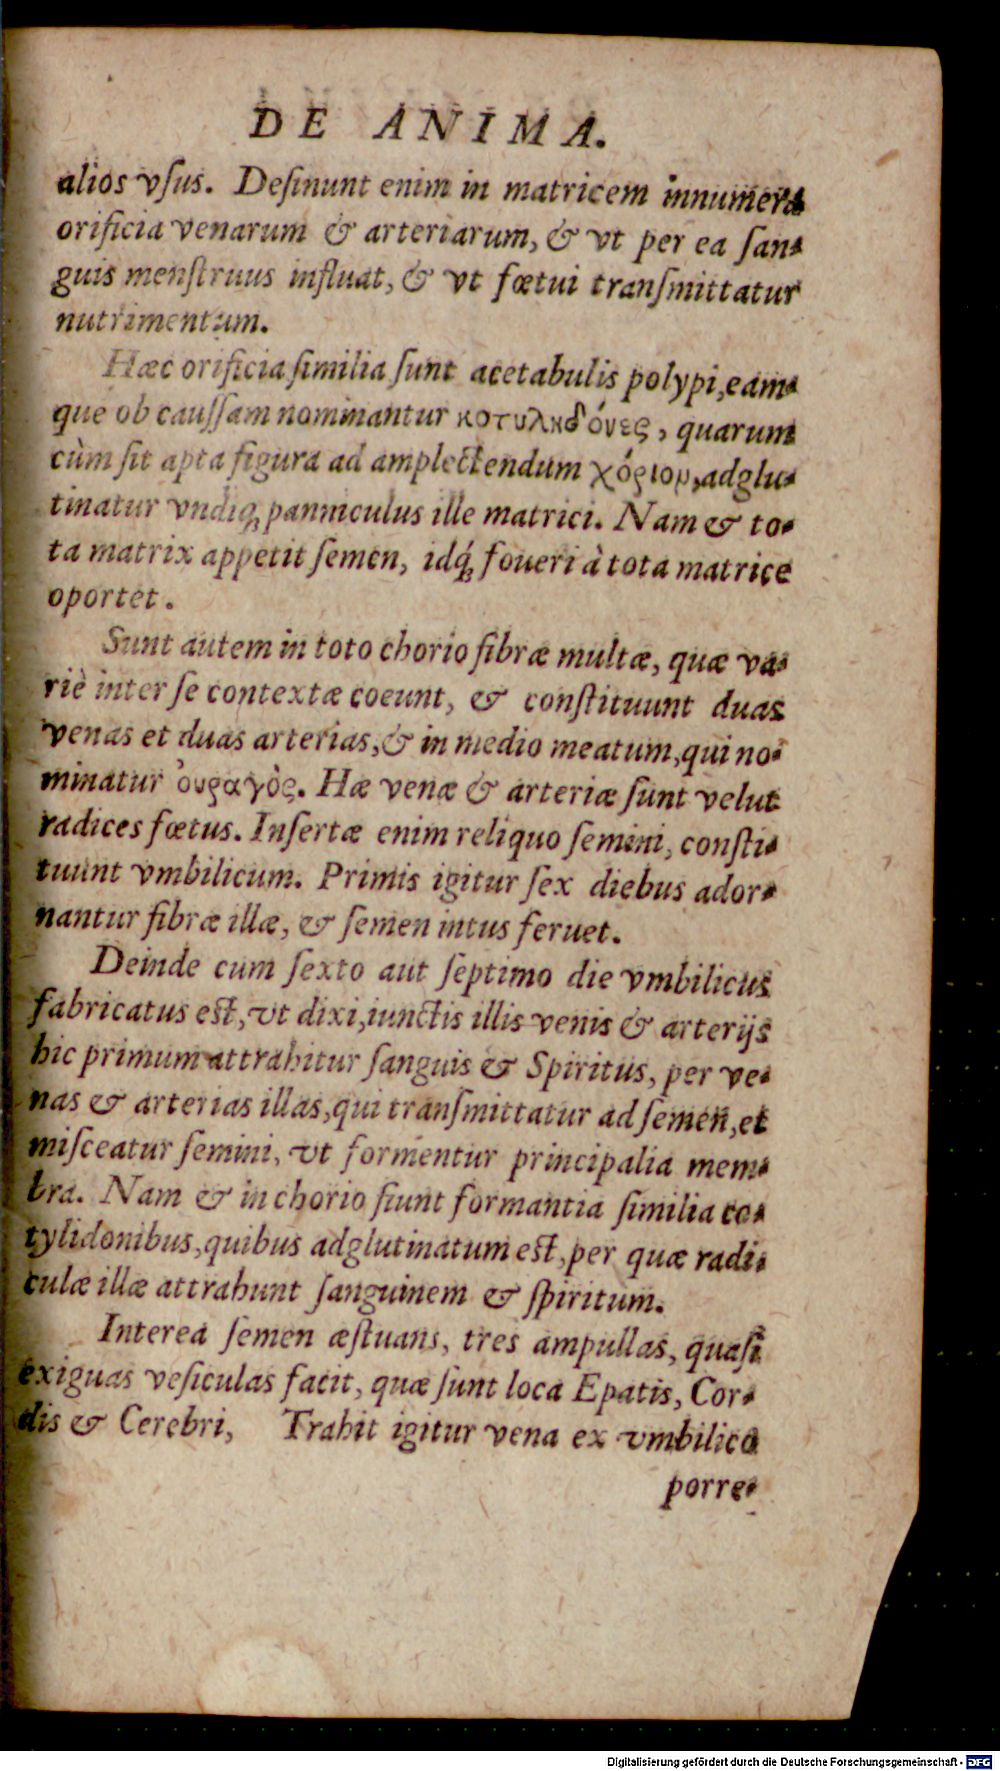 DE ANIMA.
alios vſus. Deſinunt enim in matricem innumera
orificia venarum & arteriarum, & vt per ea ſan-
guis menſtruus influat, & vt fœtui tranſmittatur
nutrimentum.
Hæc orificia ſimilia ſunt acetabulis polypi, eam-
que ob cauſſam nominantur κοτυληδόνες, quarum
cùm ſit apta figura ad amplectendum χόριον, adglu-
tinatur vndiq; panniculus ille matrici. Nam & to-
ta matrix appetit ſemen, idq́; foueri à tota matrice
oportet.
Sunt autem in toto chorio fibræ multæ, quæ va-
riè inter ſe contextæ coeunt, & conſtituunt duas
venas et duas arterias, & in medio meatum, qui no-
minatur ὀυραγὸς. Hæ venæ & arteriæ ſunt velut
radices fœtus. Inſertæ enim reliquo ſemini, conſti-
tuunt vmbilicum. Primis igitur ſex diebus ador-
nantur fibræ illæ, & ſemen intus feruet.
Deinde cum ſexto aut ſeptimo die vmbilicus
fabricatus eſt, vt dixi, iunctis illis venis & arterijs
hic primum attrahitur ſanguis & Spiritus, per ve-
nas & arterias illas, qui tranſmittatur ad ſemen, et
miſceatur ſemini, vt formentur principalia mem-
bra. Nam & in chorio fiunt formantia ſimilia co-
tylidonibus, quibus adglutinatum eſt, per quæ radi-
culæ illæ attrahunt ſanguinem & ſpiritum.
Interea ſemen æſtuans, tres ampullas, quaſi
exiguas veſiculas facit, quæ ſunt loca Epatis, Cor-
dis & Cerebri, Trahit igitur vena ex vmbilico
porre-
Digitalisierung gefördert durch die Deutsche Forschungsgemeinschaft - DFG